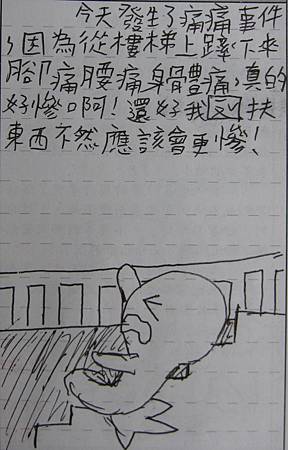 今天發生了痛痛事件
，因為從樓梯上踤下來
腳痛腰痛身骨豊痛，真的
好慘。啊！還好我有扶
東西不然應該會更慘！